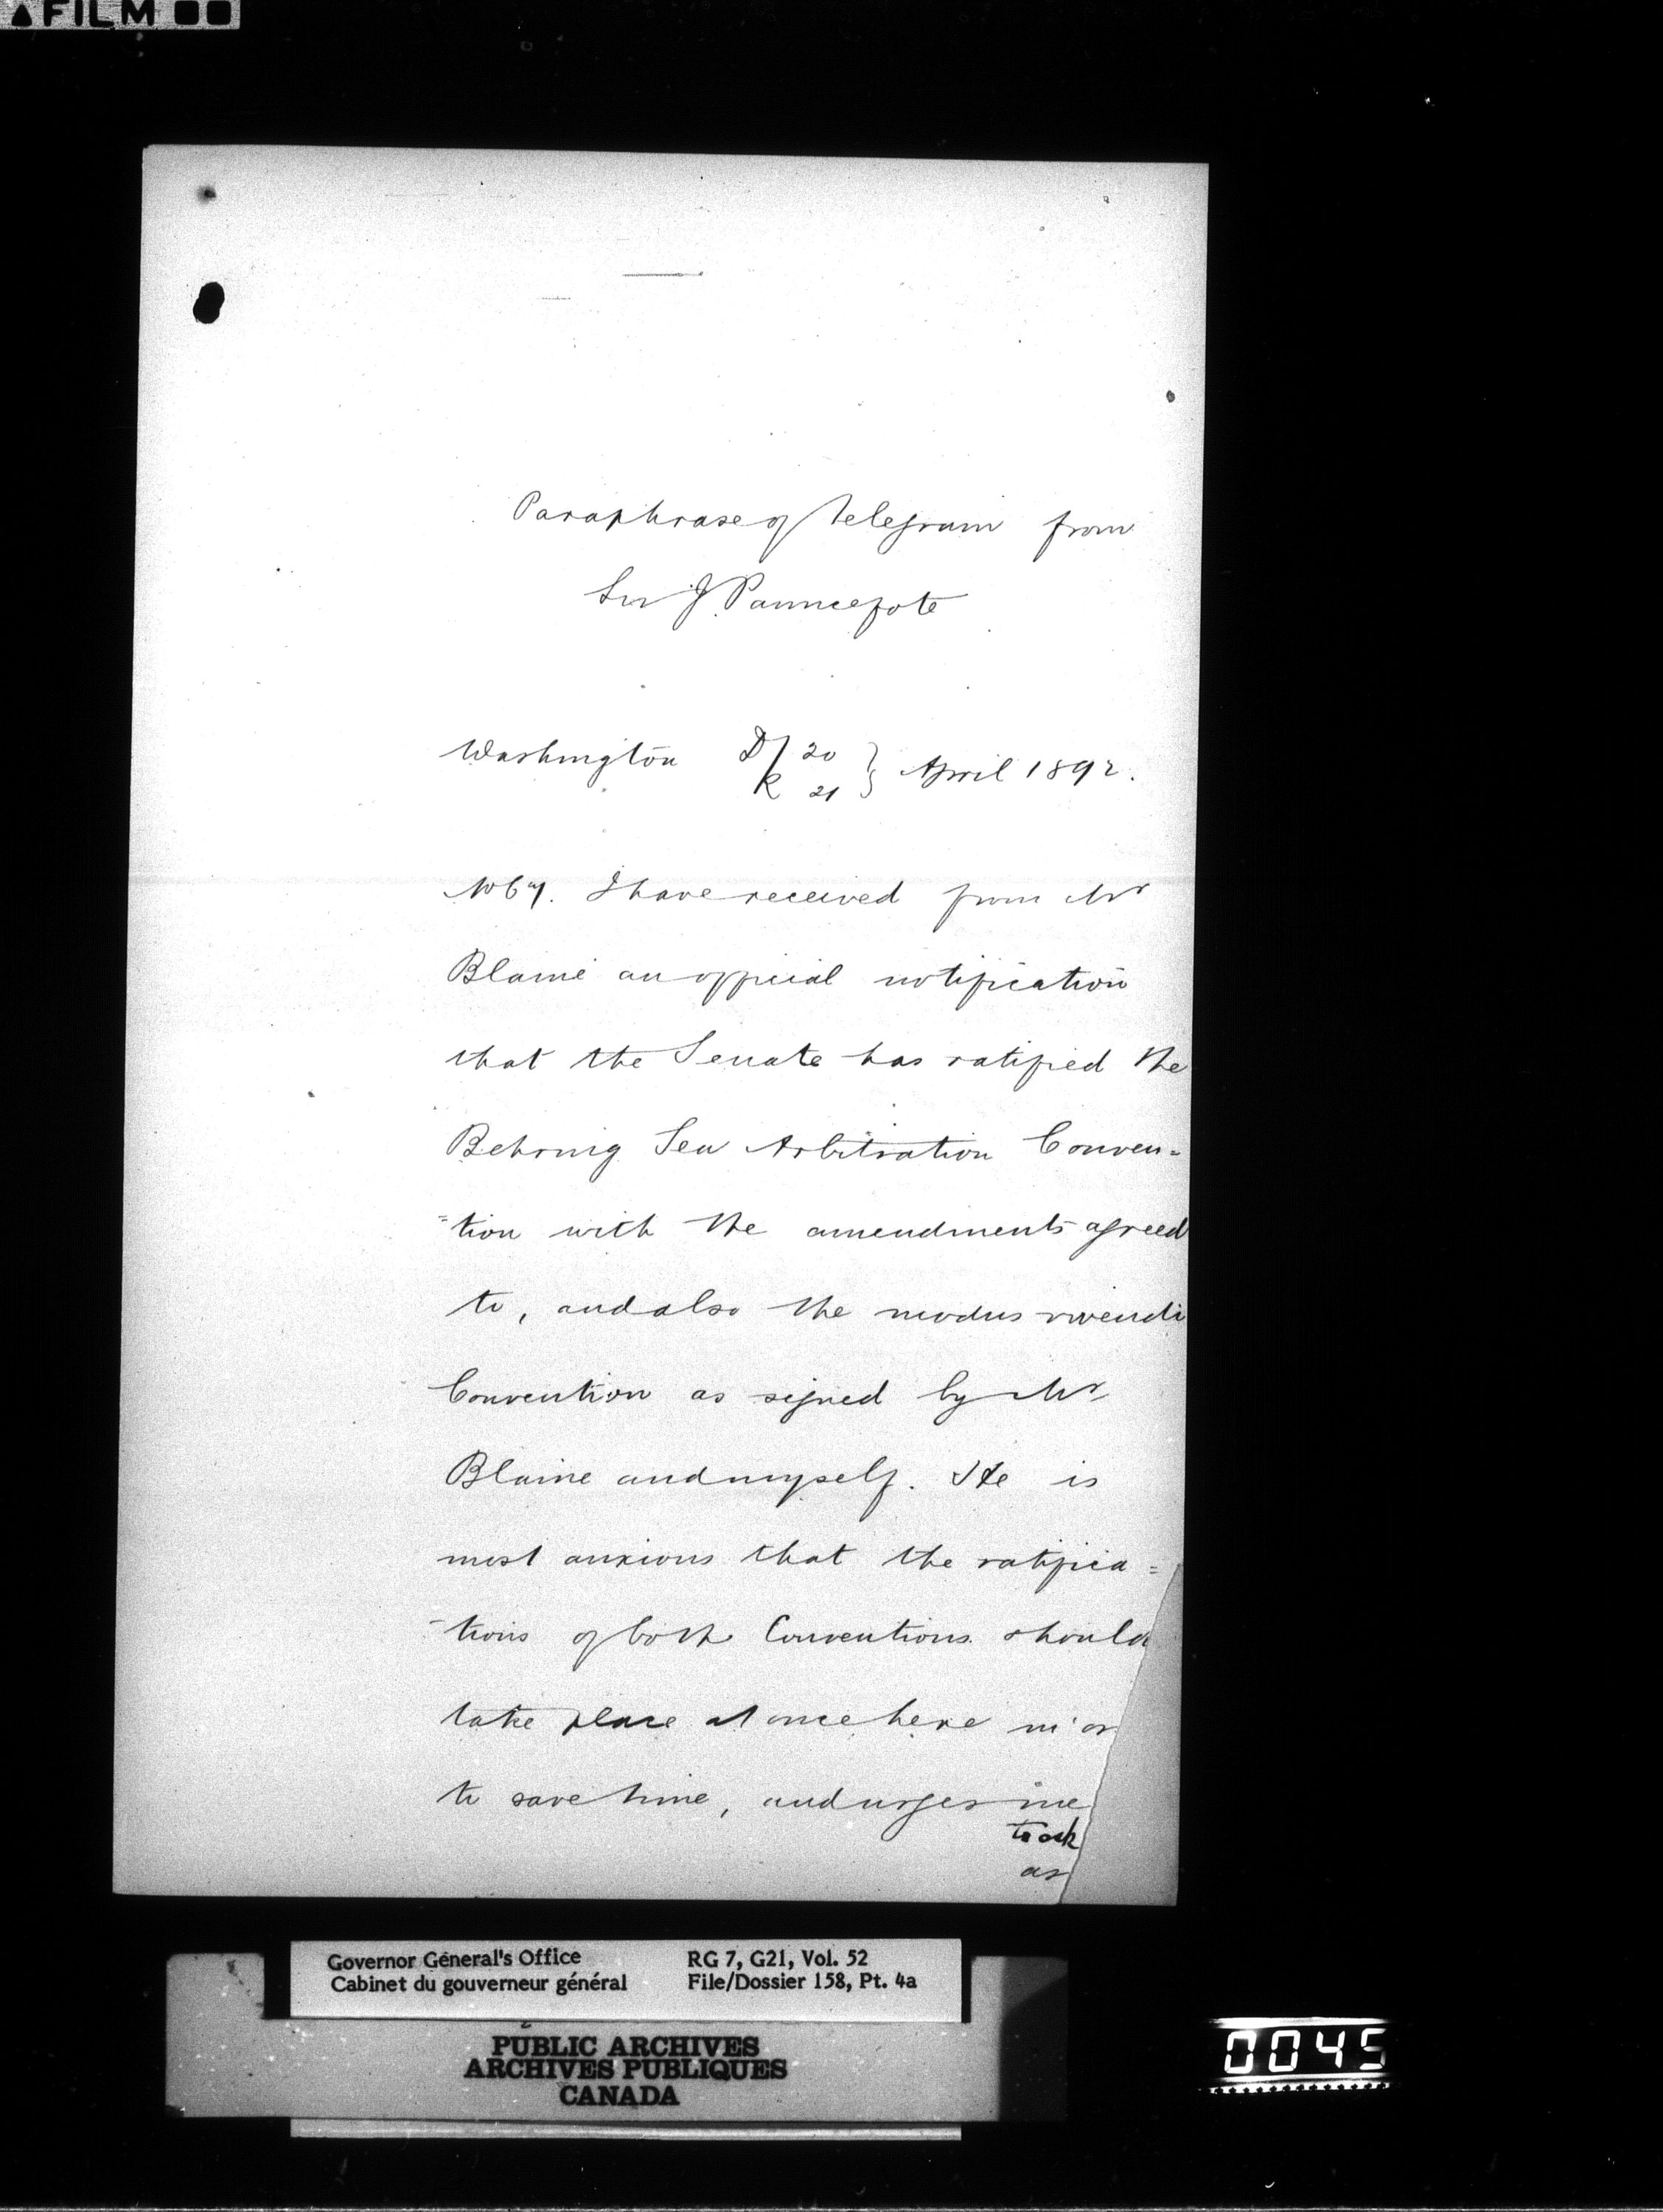 FILM
Paraphrase of telegram from
Sir J. Pauncefote
Washington D/ 20 } April 1892.
R 21
No 67. I have received from Mr
Blaine an official notification
that the Senate has ratified the
Behring Sea Arbitration Conven=
=tion with the amendments agreed
to, and also the modus vivendi
Convention as signed by Mr
Blaine and myself. He is
most anxious that the ratifica=
-tions of both Conventions should
take place at once here in or
to save time, and urges me
to ask
as
Governor General's Office RG 7, G21, Vol. 52
Cabinet du gouverneur général File/Dossier 158, Pt. 4a
PUBLIC ARCHIVES
ARCHIVES PUBLIQUES
CANADA
0045